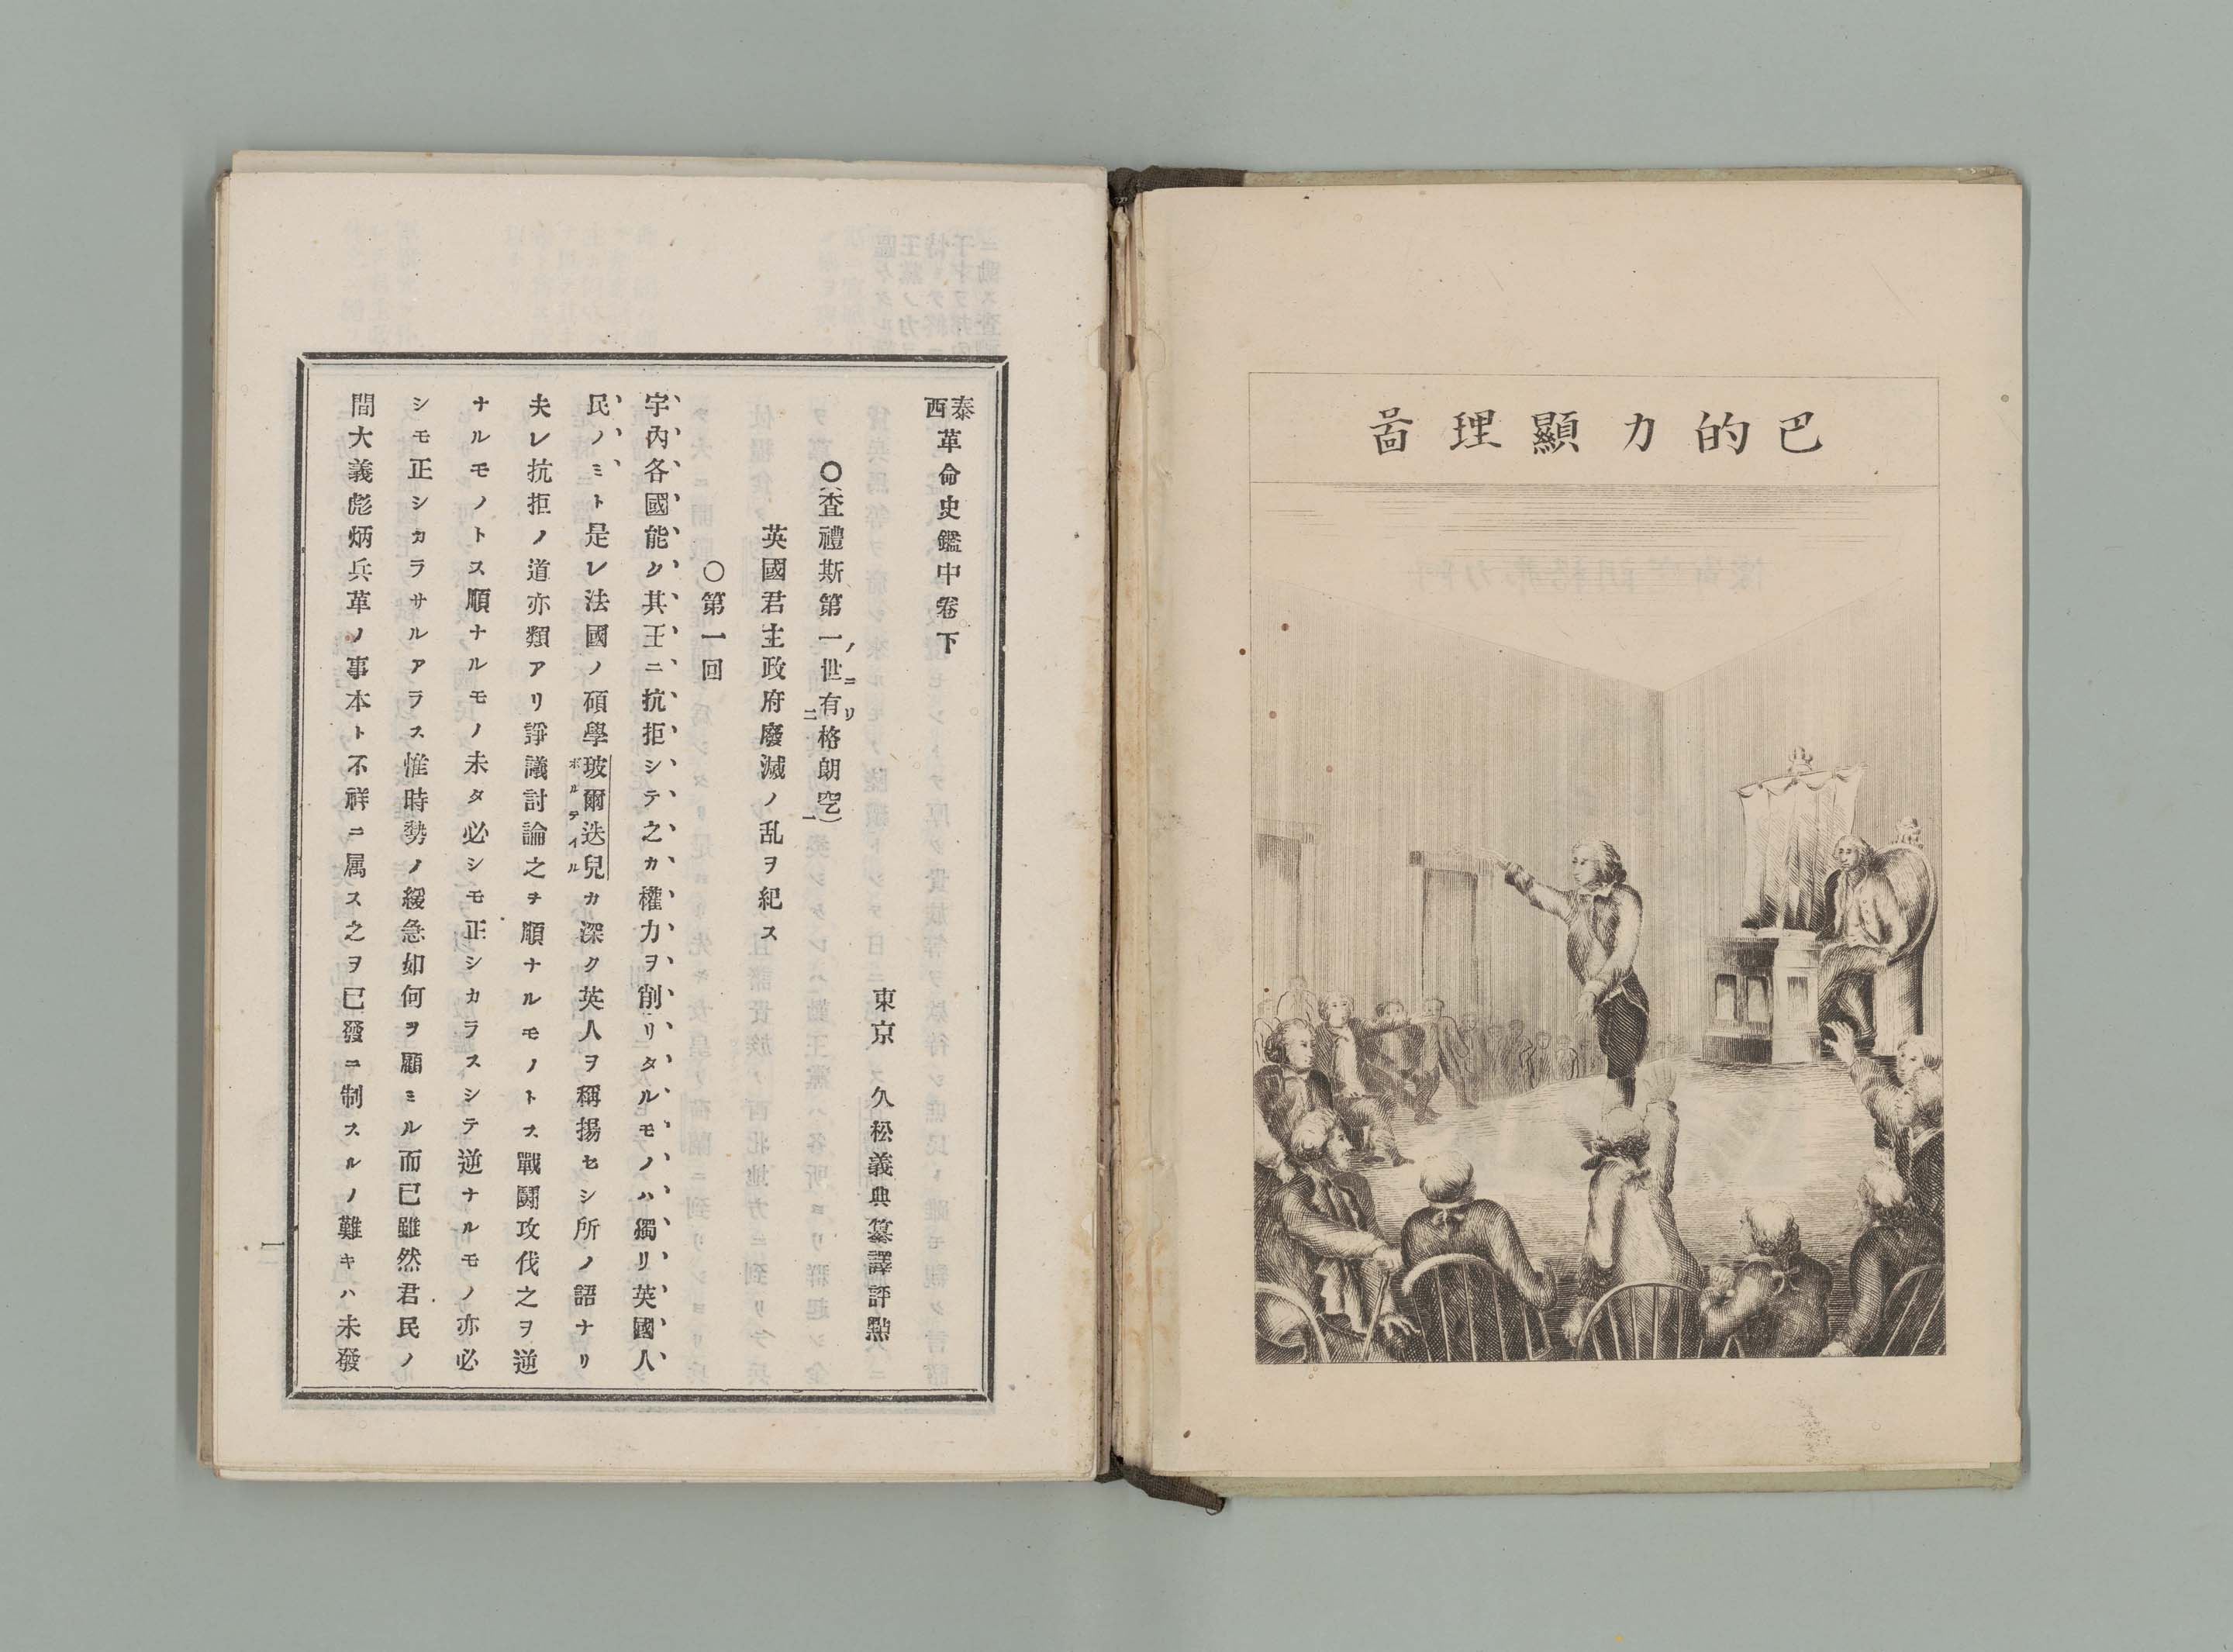 巴的力顯理啚
泰西革命史鑑中卷下
東京 久松義典纂譯評點
○(査禮斯第一ノ世ニ有リ二格朗空一)
英國君主政府廢滅ノ乱ヲ紀ス
○第一回
宇內各國能ク其王ニ抗拒シテ之カ權力ヲ削リタルモノハ獨リ英國人
民ノミト是レ法國ノ碩學玻爾迭兒ボルテイルカ深ク英人ヲ稱揚セシ所ノ語ナリ
夫レ抗拒ノ道亦類アリ諍議討論之ヲ順ナルモノトス戰鬪攻伐之ヲ逆
ナルモノトス順ナルモノ未タ必シモ正シカラスシテ逆ナルモノ亦必
シモ正シカラサルアラス惟時勢ノ緩急如何ヲ顧ミル而已雖然君民ノ
間大義彪炳兵革ノ事本ト不祥ニ属ス之ヲ已發ニ制スルノ難キハ未發
一